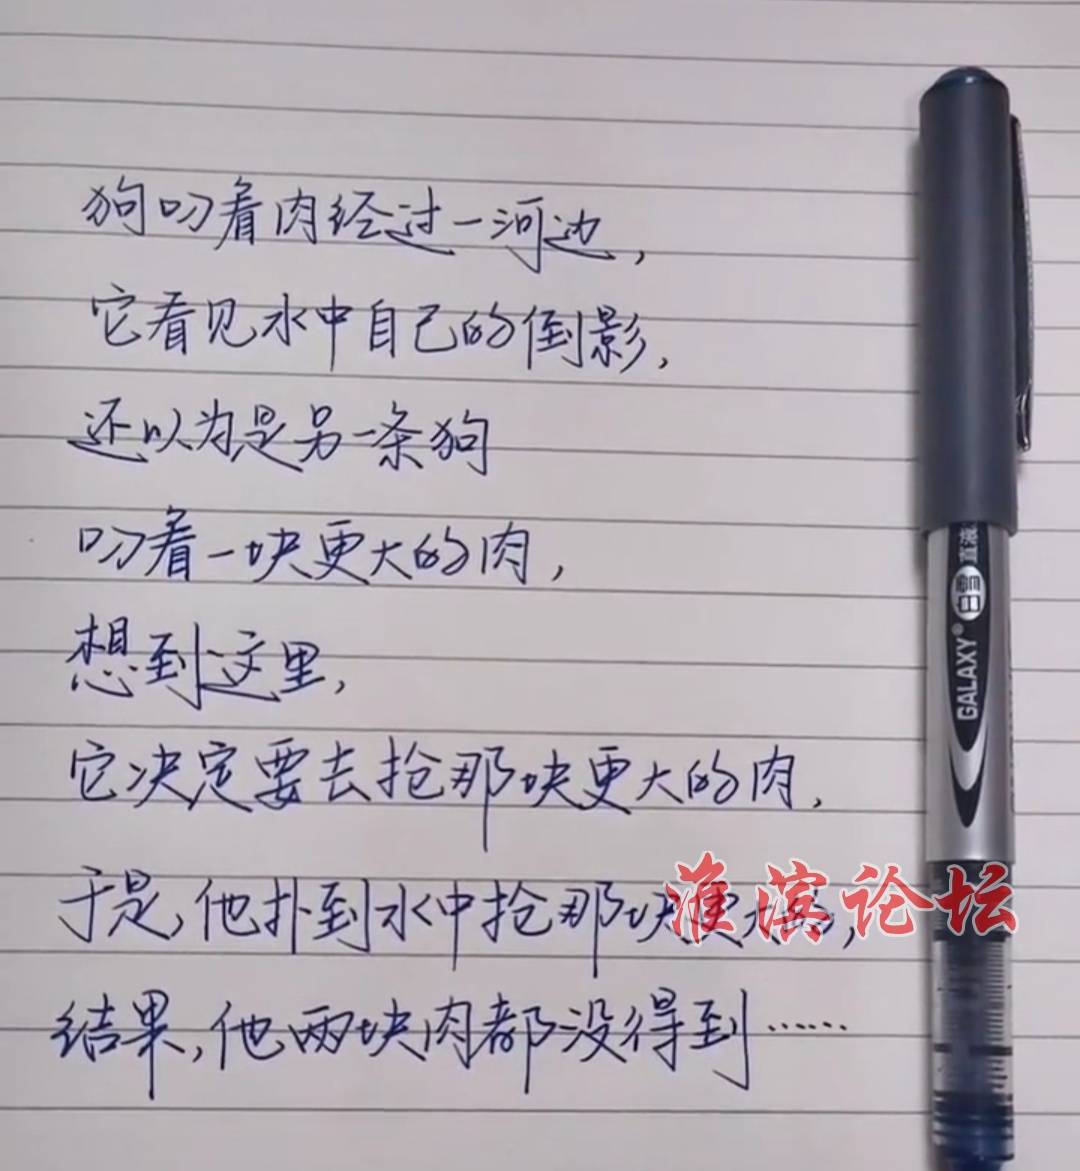 狗叨着肉经过一河边，
它看见水中自己的倒影，
还以为是另一条狗
叨着一块更大的肉，
想到这里，
它决定要去抢那块更大的肉，
于是，他扑到水中抢那块更大的，
结果，他两块肉都没得到……
淮滨论坛
GALAXY®
白雪
直液